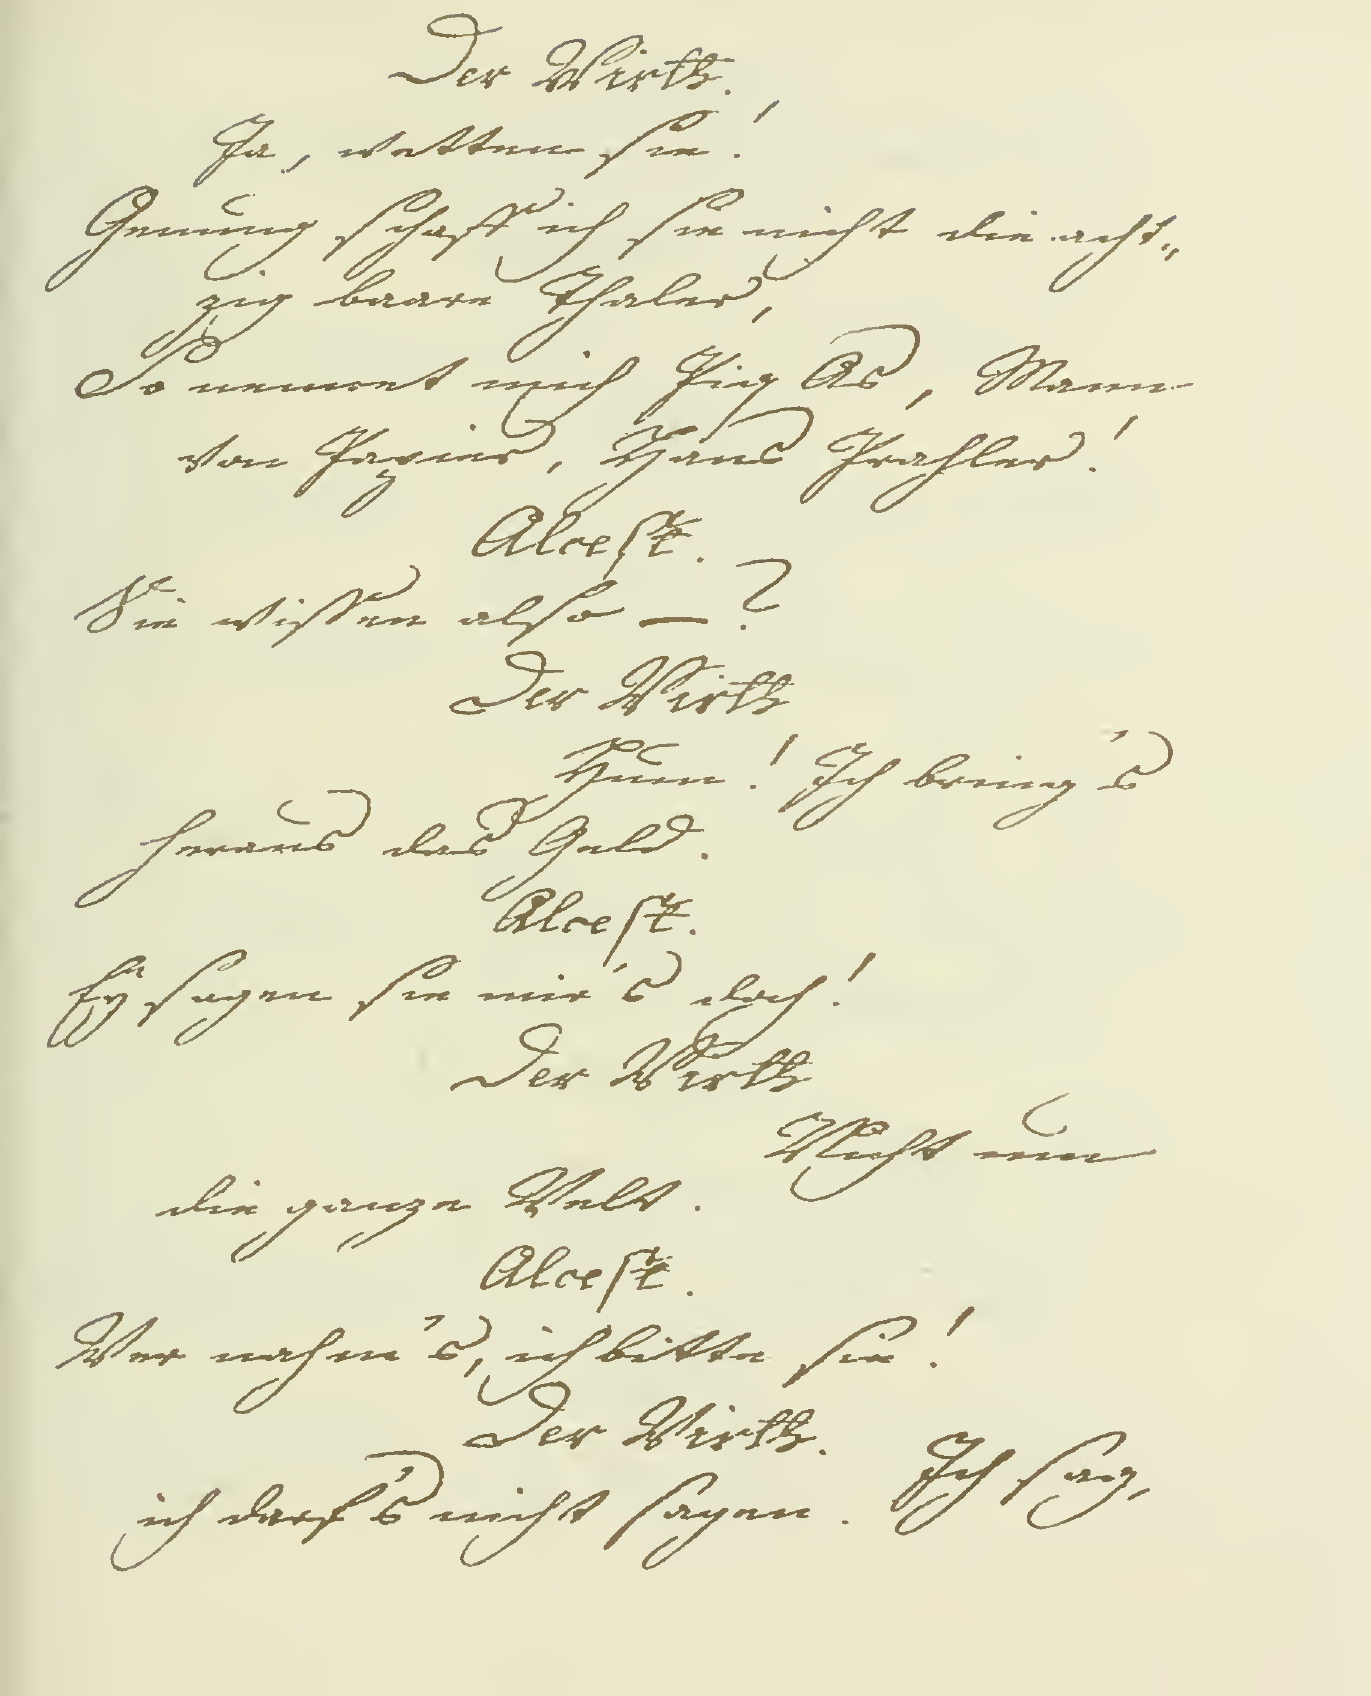 Der Wirth.
Ja, wetten sie!
Genung schaff' ich sie nicht die acht„
zig baare Thaler,
So nennet mich Piq As, Mann
von Papier, Hans Prahler!
Alceste.
Sie wissen also — ?
Der Wirth
Hum! Ich bring's
heraus das Geld.
Alceste.
Ey sagen sie mir's doch!
Der Wirth
Nicht um
die ganze Welt.
Alceste.
Wer nahm's, ich bitte sie!
Der Wirth.
Ich sag,
ich darf's nicht sagen.